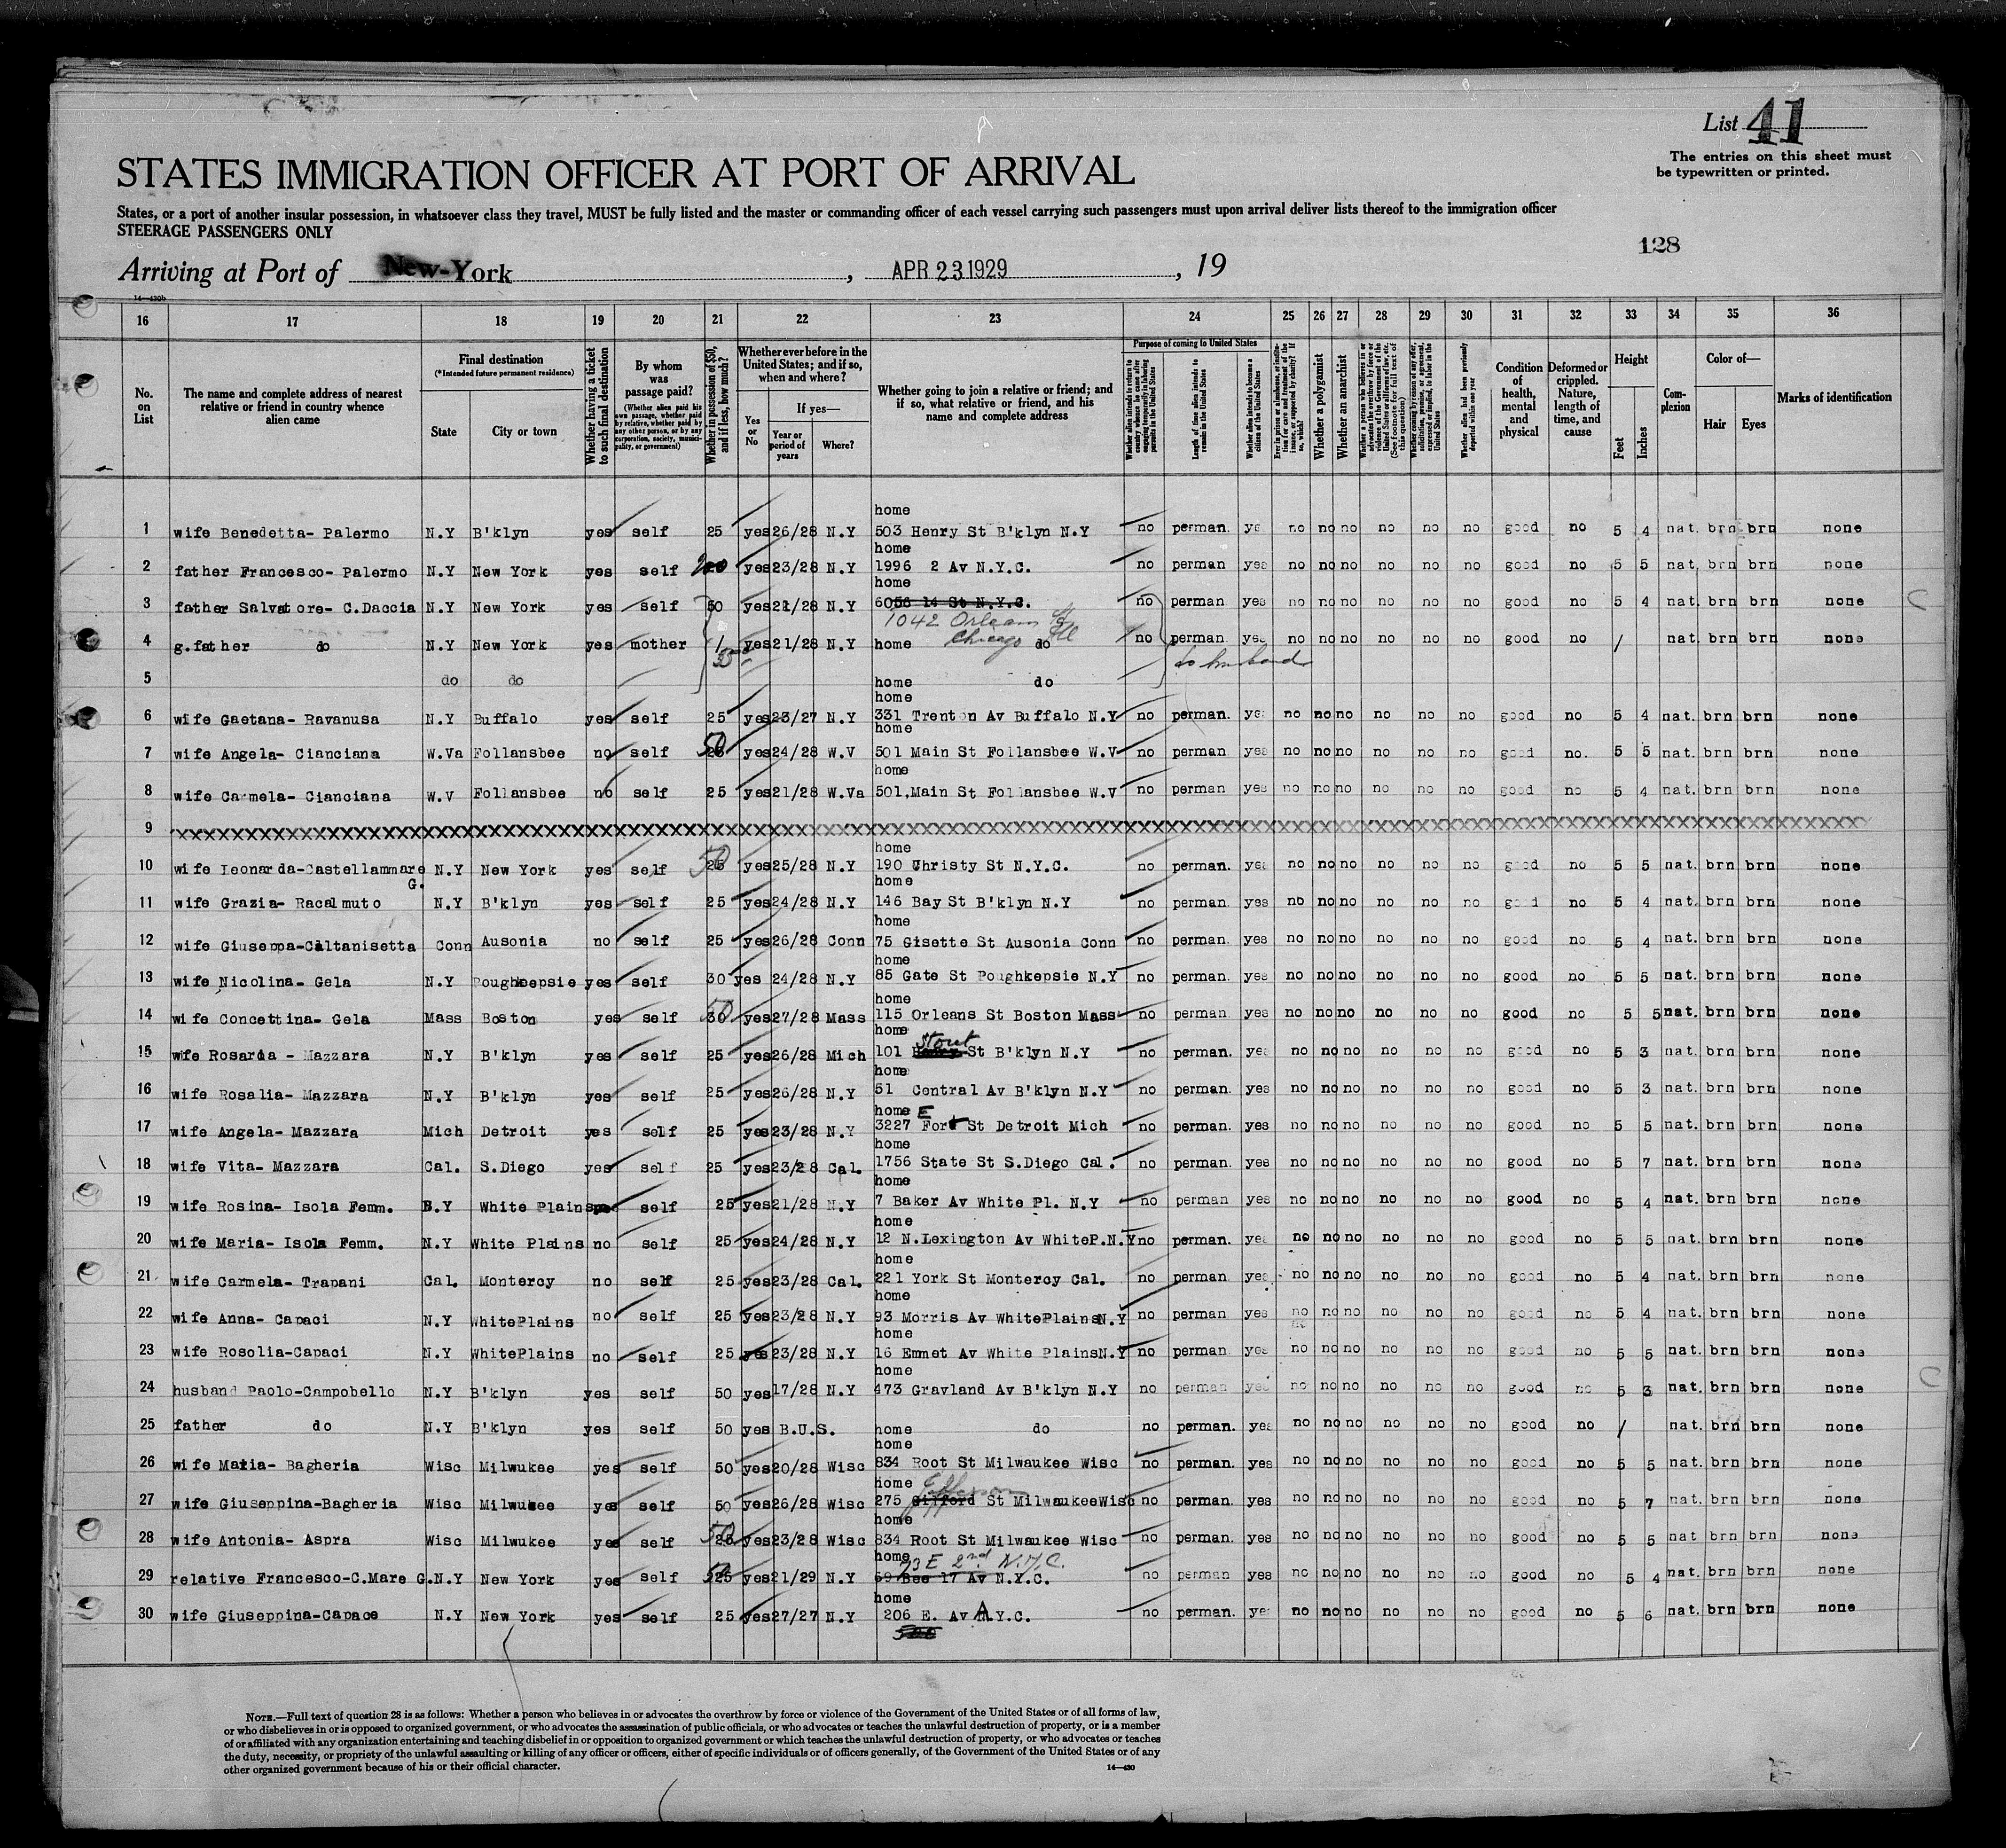 List 41
The entries on this sheet must
be typewritten or printed.
STATES IMMIGRATION OFFICER AT PORT OF ARRIVAL
States, or a port of another insular possession, in whatsoever class they travel, MUST be fully listed and the master or commanding officer of each vessel carrying such passengers must upon arrival deliver lists thereof to the immigration officer
STEERAGE PASSENGERS ONLY
128
Arriving at Port of New-York, APR 23 1929, 19
16 17 18 19 20 21 22 23 24 25 26 27 28 29 30 31 32 33 34 35 36
No. on List
The name and complete address of nearest relative or friend in country whence alien came
Final destination
(*Intended future permanent residence)
State
City or town
Whether having a ticket to such final destination
By whom was passage paid?
(Whether alien paid his own passage, whether paid by relative, whether paid by any other person, or by any corporation, society, municipality, or government)
Whether in possession of $50, and if less, how much?
Whether ever before in the United States; and if so, when and where?
Yes or No
If yes—
Year or period of years
Where?
Whether going to join a relative or friend; and if so, what relative or friend, and his name and complete address
Purpose of coming to United States
Length of time alien intends to remain in the United States
Whether alien intends to become a citizen of the United States
Whether a polygamist
Whether an anarchist
Condition of health, mental and physical
Deformed or crippled. Nature, length of time, and cause
Height
Feet
Inches
Complexion
Color of—
Hair
Eyes
Marks of identification
home
1 wife Benedetta- Palermo N.Y B'klyn yes self 25 yes 26/28 N.Y 503 Henry St B'klyn N.Y no perman. ye no no no no no no good no 5 4 nat. brn brn none
home
2 father Francesco- Palermo N.Y New York yes self yes 23/28 N.Y 1996 2 Av N.Y.C. no perman yes no no no no no no good no 5 5 nat. brn brn none
home
3 father Salvatore- C.Daccia N.Y New York yes self 50 yes 21/28 N.Y 6056 14 St N.Y.C. no perman yes no no no no no no good no 5 4 nat. brn brn none
1042 Orleans St
Chicago Ill
4 g.father do N.Y New York yes mother / yes 21/28 N.Y home do no perman. yes no no no no no no good no / nat. brn brn none
to husband
5 do do home do
home
6 wife Gaetana- Ravanusa N.Y Buffalo yes self 25 yes 23/27 N.Y 331 Trenton Av Buffalo N.Y no perman. yes no no no no no no good no 5 4 nat. brn brn none
home
7 wife Angela- Cianciana W.Va Follansbee no self 50 yes 24/28 W.V 501 Main St Follansbee W.V no perman yes no no no no no no good no. 5 5 nat. brn brn none
home
8 wife Carmela- Cianciana W.V Follansbee no self 25 yes 21/28 W.Va 501,Main St Follansbee W.V no perman yes no no no no no no good no 5 4 nat. brn brn none
9
home
10 wife Leonarda-Castellammare G. N.Y New York yes self 50 25 yes 25/28 N.Y 190 Christy St N.Y.C. no perman. yes no no no no no no good no 5 5 nat. brn brn none
home
11 wife Grazia- Racalmuto N.Y B'klyn yes self 25 yes 24/28 N.Y 146 Bay St B'klyn N.Y no perman. yes no no no no no no good no 5 4 nat. brn brn none
home
12 wife Giuseppa-Caltanisetta Conn Ausonia no self 25 yes 26/28 Conn 75 Gisette St Ausonia Conn no perman. yes no no no no no no good no 5 4 nat. brn brn none
home
13 wife Nicolina- Gela N.Y Poughkeepsie yes self 30 yes 24/28 N.Y 85 Gate St Poughkepsie N.Y no perman. yes no no no no no no good no 5 5 nat. brn brn none
home
14 wife Concettina- Gela Mass Boston yes self 50 30 yes 27/28 Mass 115 Orleans St Boston Mass no perman. yes no no no no no no good no 5 5 nat. brn brn none
home
15 wife Rosaria - Mazzara N.Y B'klyn yes self 25 yes 26/28 Mich 101 Stout St B'klyn N.Y no perman. yes no no no no no no good no 5 3 nat. brn brn none
home
16 wife Rosalia- Mazzara N.Y B'klyn yes self 25 yes 26/28 N.Y 51 Central Av B'klyn N.Y no perman. yes no no no no no no good no 5 3 nat. brn brn none
home E
17 wife Angela- Mazzara Mich Detroit yes self 25 yes 23/28 N.Y 3227 Fort St Detroit Mich no perman. yes no no no no no no good no 5 5 nat. brn brn none
home
18 wife Vita- Mazzara Cal. S.Diego yes self 25 yes 23/28 Cal. 1756 State St S.Diego Cal. no perman. yes no no no no no no good no 5 7 nat. brn brn none
home
19 wife Rosina- Isola Femm. N.Y White Plains self 25 yes 21/28 N.Y 7 Baker Av White Pl. N.Y no perman yes no no no no no no good no 5 4 nat. brn brn none
home
20 wife Maria- Isola Femm. N.Y White Plains no self 25 yes 24/28 N.Y 12 N.Lexington Av WhiteP.N.Y no perman. yes no no no no no no good no 5 5 nat. brn brn none
home
21 wife Carmela- Trapani Cal. Monterey no self 25 yes 23/28 Cal. 221 York St Monterey Cal. no perman. yes no no no no no no good no 5 4 nat. brn brn none
home
22 wife Anna- Capaci N.Y WhitePlains no self 25 yes 23/28 N.Y 93 Morris Av WhitePlainsN.Y no perman yes no no no no no no good no 5 4 nat. brn brn none
home
23 wife Rosolia-Capaci N.Y WhitePlains no self 25 yes 23/28 N.Y 16 Emmet Av White PlainsN.Y no perman. yes no no no no no no good no 5 5 nat. brn brn none
home
24 husband Paolo-Campobello N.Y B'klyn yes self 50 yes 17/28 N.Y 473 Gravland Av B'klyn N.Y no perman yes no no no no no no good no 5 3 nat. brn brn none
25 father do N.Y B'klyn yes self 50 yes B.U.S. home do no perman. yes no no no no no no good no / nat. brn brn none
home
26 wife Maria- Bagheria Wisc Milwukee yes self 50 yes 20/28 Wisc 834 Root St Milwaukee Wisc no perman. yes no no no no no no good no 5 5 nat. brn brn none
home Jefferson
27 wife Giuseppina-Bagheria Wisc Milwukee yes self 50 yes 26/28 Wisc 275 Gifford St MilwaukeeWisc no perman. yes no no no no no no good no 5 7 nat. brn brn none
home
28 wife Antonia- Aspra Wisc Milwukee yes self 50 25 yes 23/28 Wisc 834 Root St Milwaukee Wisc no perman. yes no no no no no no good no 5 5 nat brn brn none
home 73 E 2nd N.Y.C.
29 relative Francesco-C.Mare G. N.Y New York yes self 50 25 yes 21/29 N.Y 17 Av N.Y.C. no perman yes no no no no no no good no 5 4 nat. brn brn none
home
30 wife Giuseppina-Capace N.Y New York yes self 25 yes 27/27 N.Y 206 E. Av A N.Y.C. no perman. yes no no no no no no good no 5 6 nat. brn brn none
NOTE.—Full text of question 28 is as follows: Whether a person who believes in or advocates the overthrow by force or violence of the Government of the United States or of all forms of law,
or who disbelieves in or is opposed to organized government, or who advocates the assassination of public officials, or who advocates or teaches the unlawful destruction of property, or is a member
of or affiliated with any organization entertaining and teaching disbelief in or opposition to organized government or which teaches the unlawful destruction of property, or who advocates or teaches
the duty, necessity, or propriety of the unlawful assaulting or killing of any officer or officers, either of specific individuals or of officers generally, of the Government of the United States or of any
other organized government because of his or their official character.
14—430